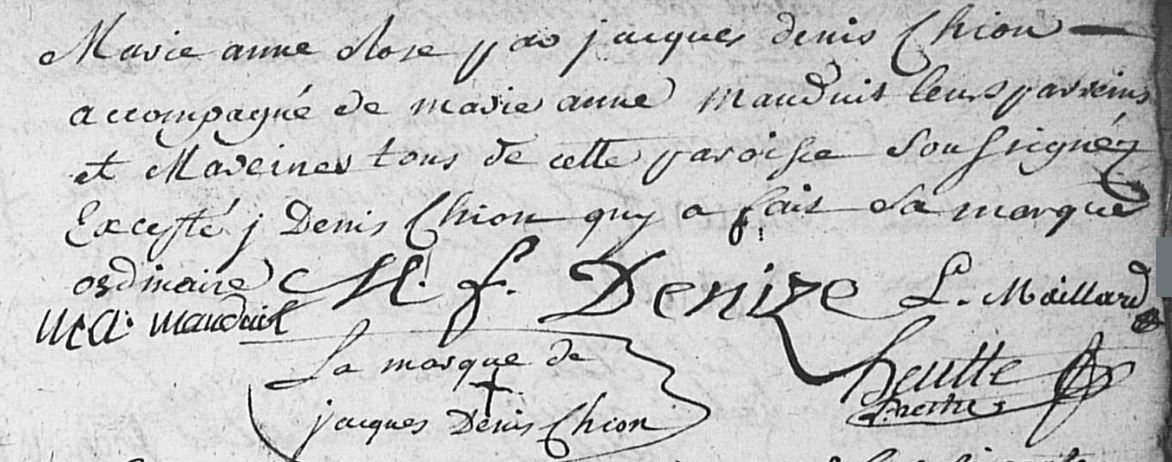 Marie anne Rose par jacques denis Chion
accompagné de marie anne Mauduit leurs parreins
et Mareines tous de cette paroisse Soussignéz
Excepté j Denis Chion quy a fait Sa marque
ordinaire M. f. Denize L. Maillard
M.A. Mauduit
La marque de
jacques Denis Chion
heutte
prestre